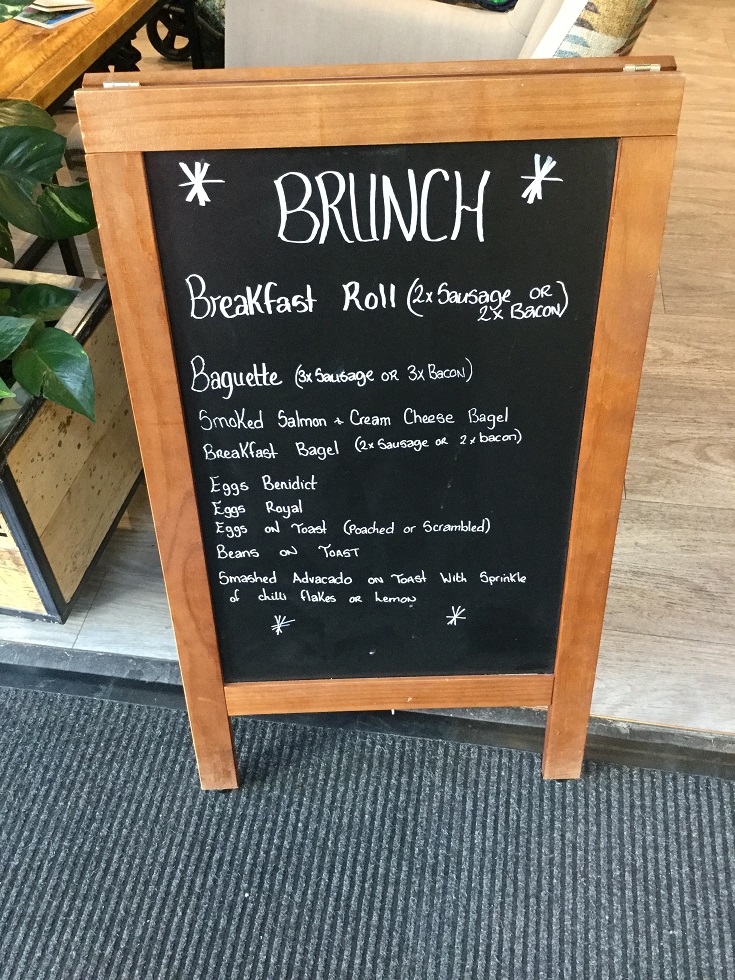 BRUNCH
Breakfast Roll (2x Sausage OR
2x Bacon)
Baguette (3x Sausage OR 3x Bacon)
Smoked Salmon + Cream Cheese Bagel
Breakfast Bagel (2x Sausage OR 2x bacon)
Eggs Benidict
Eggs Royal
Eggs on Toast (Poached or Scrambled)
Beans on Toast
Smashed Advacado on Toast With Sprinkle
of chilli flakes or Lemon